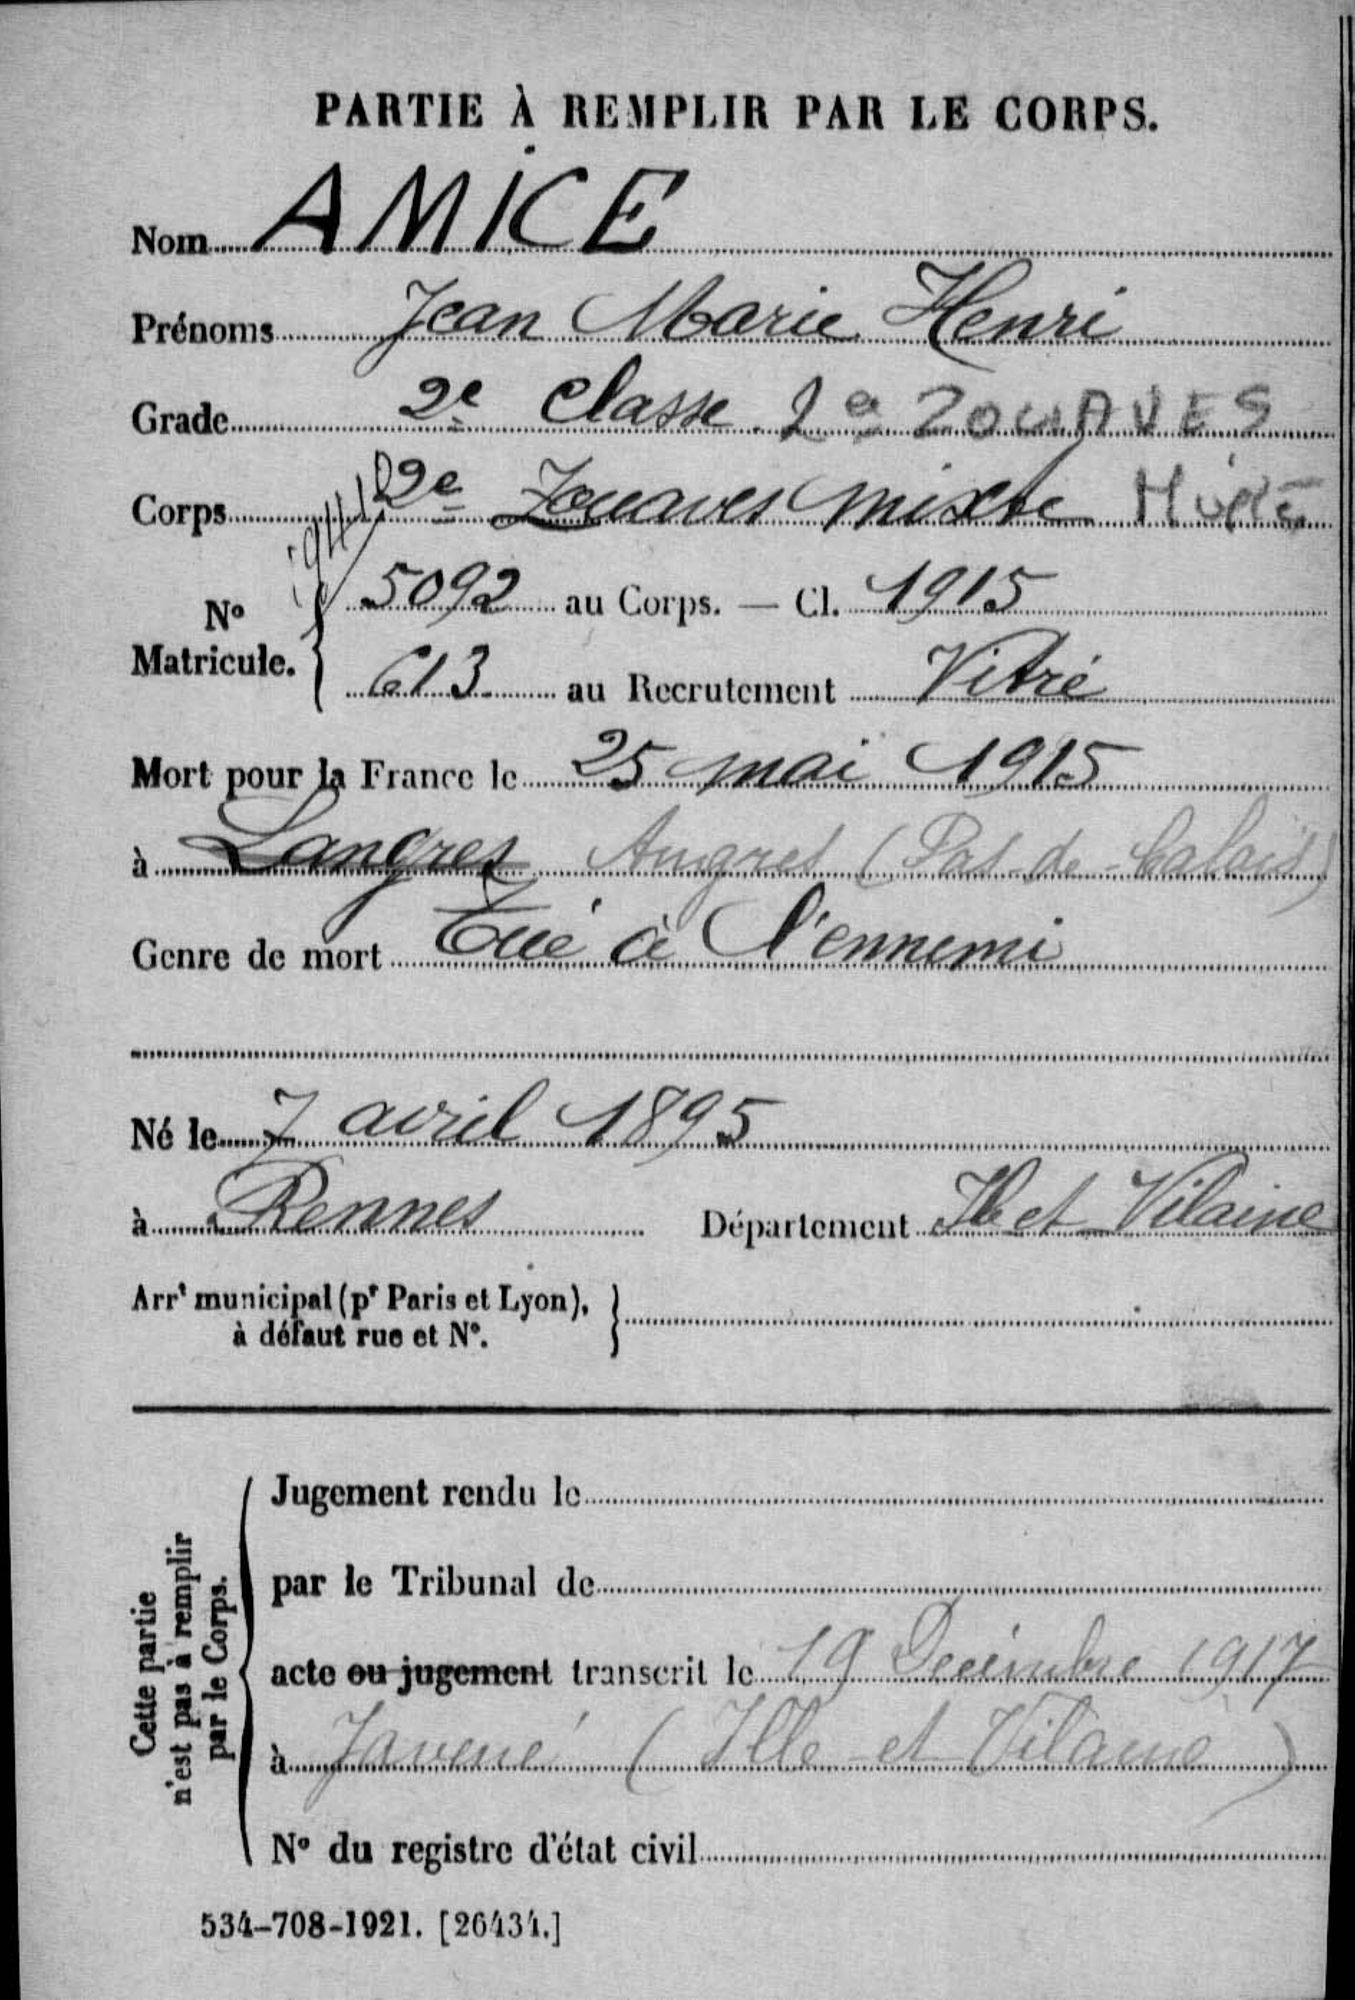 PARTIE À REMPLIR PAR LE CORPS.
Nom AMICE
Prénoms Jean Marie Henri
Grade 2e Classe 2e ZOUAVES
Corps 2e Zouaves mixte Mixte
N° Matricule. 5092 au Corps. — Cl. 1915
613 au Recrutement Vitré
Mort pour la France le 25 mai 1915
à Langres Angres (Pas-de-Calais)
Genre de mort Tué à l'ennemi
Né le 7 avril 1895
à Rennes Département Ile et Vilaine
Arrt municipal (pr Paris et Lyon),
à défaut rue et N°.
Cette partie
n'est pas à remplir
par le Corps.
Jugement rendu le
par le Tribunal de
acte ou jugement transcrit le 19 Décembre 1917
à Javené (Ille-et-Vilaine)
N° du registre d'état civil
534-708-1921. [26434.]